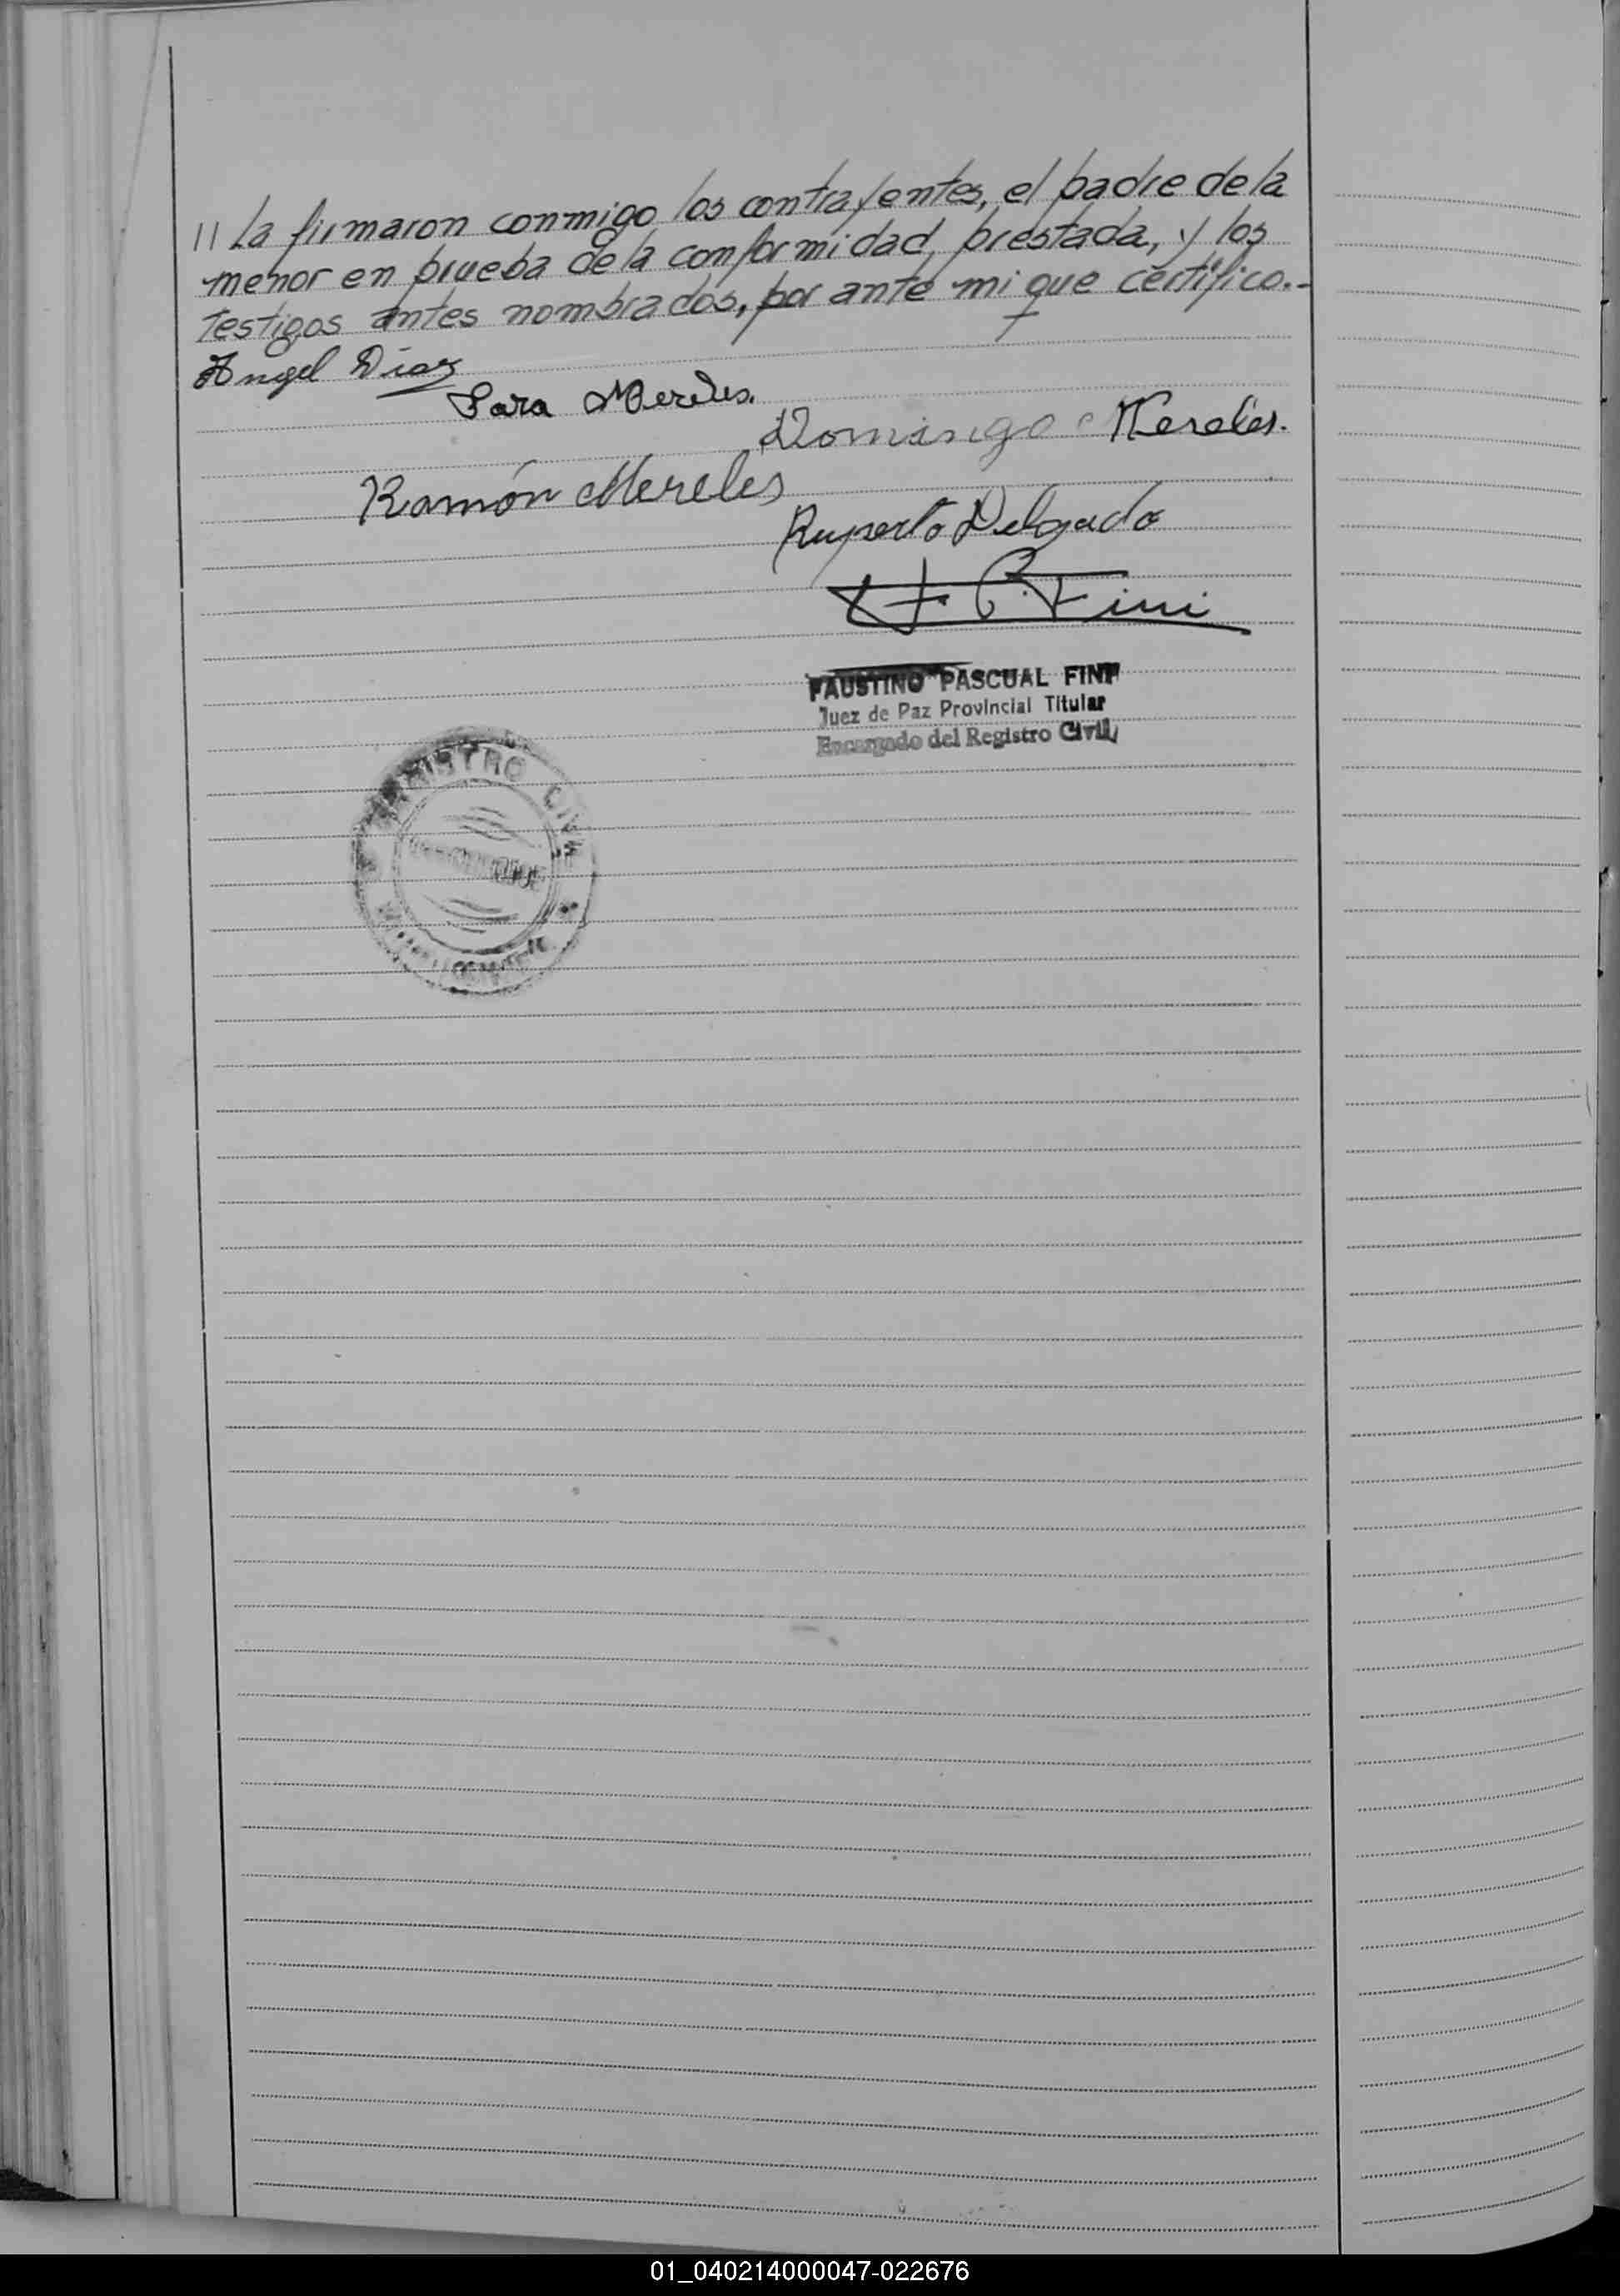 // la firmaron conmigo los contrayentes, el padre de la
menor en prueba de la conformidad prestada, y los
testigos antes nombrados, por ante mi que certifico.-
Angel Diaz
Sara Mereles.
Domingo Mereles.
Ramón Mereles
Ruperto Delgado
F. P. Fini
FAUSTINO PASCUAL FINI
Juez de Paz Provincial Titular
Encargado del Registro Civil
REGISTRO CIVIL
01_040214000047-022676